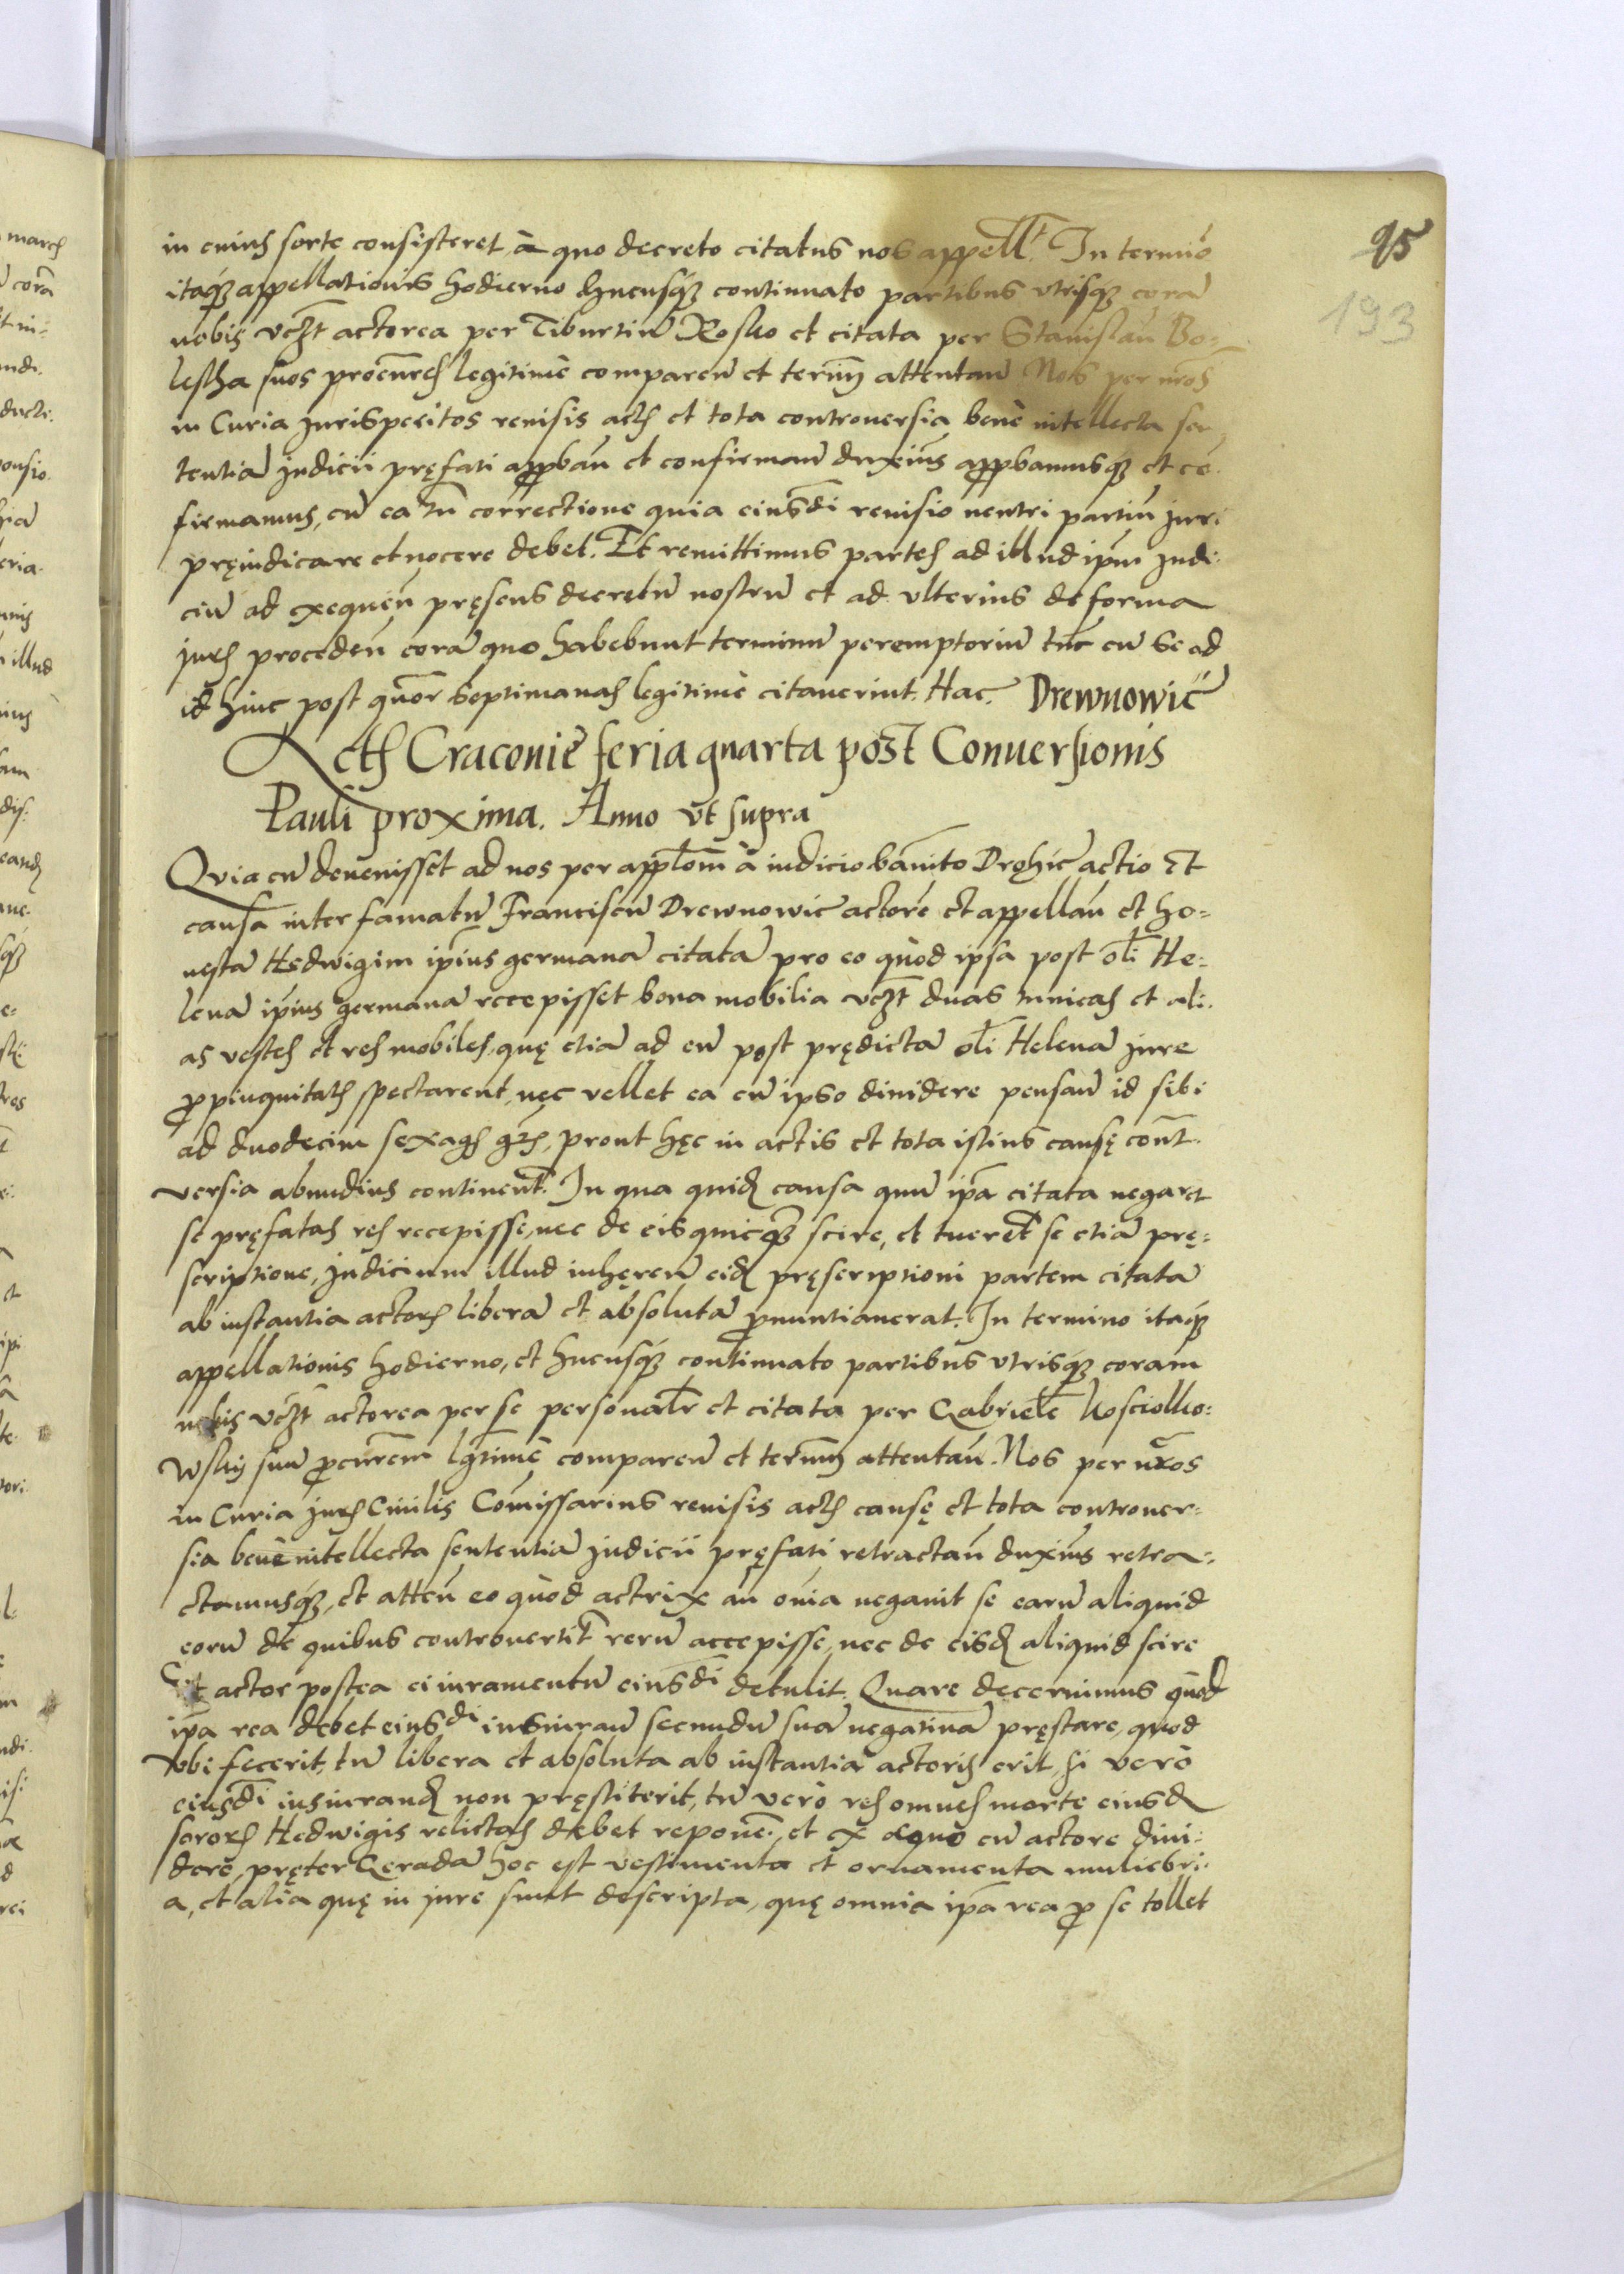 95
193
in cuius sorte consisteret à quo decreto citatus nos appellt. In termio
itaq3 appellationis hodierno & hucusq3 continuato partibus vtrisq3 corā
nobis vcz̄t actorea per Tiburtiū Rosko et citata per Stanislaū Bo:
lesthа suos procūres legitimè comparen̄ et termn̄ attentan̄ Nos per nr̄os
in Curia Jurisperitos reuisis actis et tota controuersia benè intellecta sen
tentiā Judicii pręfati approban̄ et confirman̄ duxim̄us approbamusq3 et cō
firmamus, cū ea tn̄ correctione quia eiusdi reuisio neutri partiū Juri
pręiudicare et nocere debet. Et remittimus partes ad illud ipm̄ Judi:
ciū ad exequen̄ pręsens decretū nostrū et ad vlterius de forma
Juris proceden̄ corā quo habebunt terminū peremptoriū tūc cū se ad
id hinc post quōr septimanas legitimè citauerint. Hac. Drewnowic
Actis Craconię feria quarta post Conuersionis
Pauli proxima. Anno vt supra
Quia cū deuenisset ad nos per applōm à iudicio bānito Drohic actio Et
causa inter famatū Franciscū Drewnowic actorē et appellan̄ et ho=
nestā Hedwigim ipīus germanā citatā pro eo quòd ipsa post olī He=
lenā ipīus germanā recepisset bona mobilia vcz̄t duas tunicas et ali:
as vestes et res mobiles, quę etiā ad eū post prędictā olī Helenā Jure
propinquitatis spectarent, nec vellet ea cū ipso diuidere pensan̄ id sibi
ad duodecim sexages grs, prout hęc in actis et tota istius causę cont̄
versia abundius continent. In qua quid causa quū ipā citata negaret
se pręfatas res recepisse, nec de eis quicq3 scire, et tueret se etiā prę:
scriptione, Judicium illud inhęren̄ eid pręscriptioni partem citatā
ab instantia actoris liberā et absolutā pronuntiauerat. In termino itaq3
appellationis hodierno, et hucusq3 continuato partibus vtrisq3 coram
nobis vcz̄t actorea per se personalr et citata per Gabrielē Kosciolko:
wskij suū procūrem lgitimè comparen̄ et termn̄ attentan̄. Nos per nr̄os
in Curia Juris Ciuilis Comissarios reuisis actis causę et tota controuer=
sia benè intellecta sententiā Judicii pręfati retractan̄ duxim̄us retra=
ctamusq3, et atten̄ eo quòd actrix an̄ oīa negauit se earū aliquid
eorū de quibus controuertit rerū accepisse, nec de eisd aliquid scire
Et actor postea ei iuramentū eiusdi detulit. Quare decernimus quòd
ipā rea debet eiusdi iusiuran̄ secundū suā negatiuā pręstare, quod
vbi fecerit, tū libera et absoluta ab instantia actoris erit, si verò
eiusdi iusiurand non pręstiterit, tū verò res omnes morte eiusd
sororis Hedwigis relictas debet reponē. et ex aequo cū actore diui:
dere, pręter Geradā hoc est vestimenta et ornamenta muliebri
a, et alia quę in Jure sunt descripta, quę omnia ipā rea pro se tollet